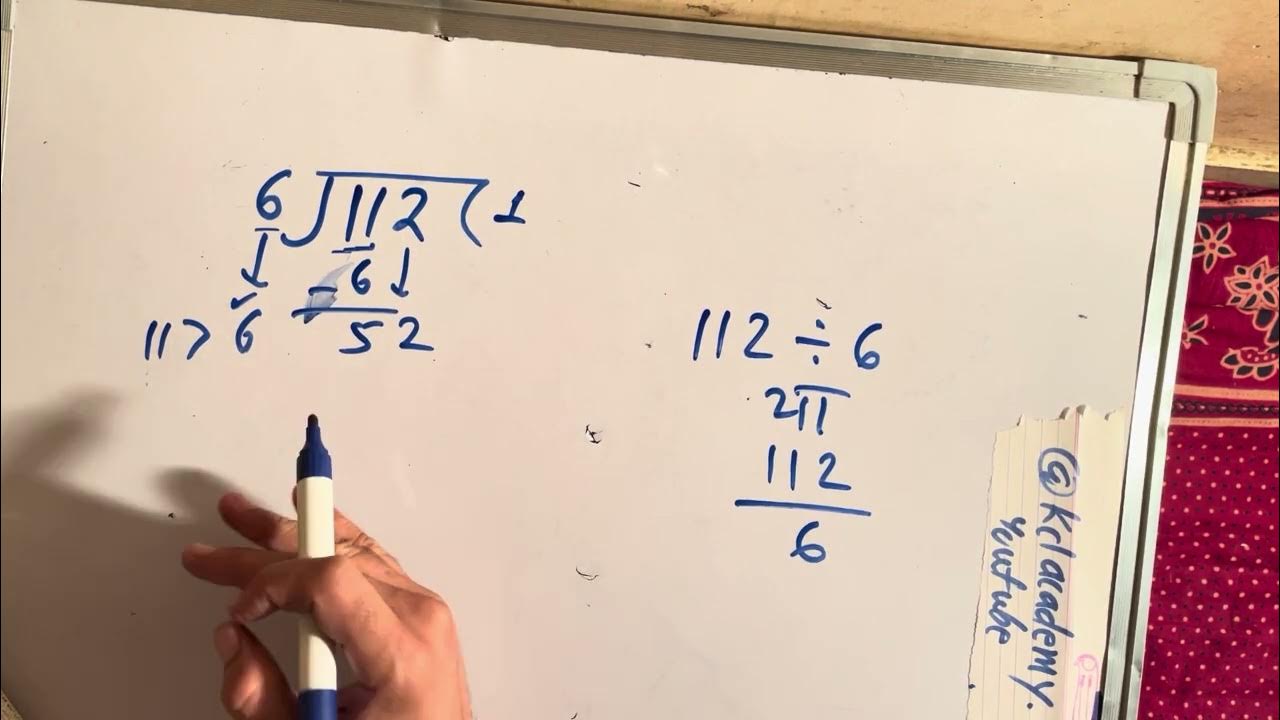 6)112(1
- 6
11>6 52
112 ÷ 6
112
6
@Kclacademy.
Youtube